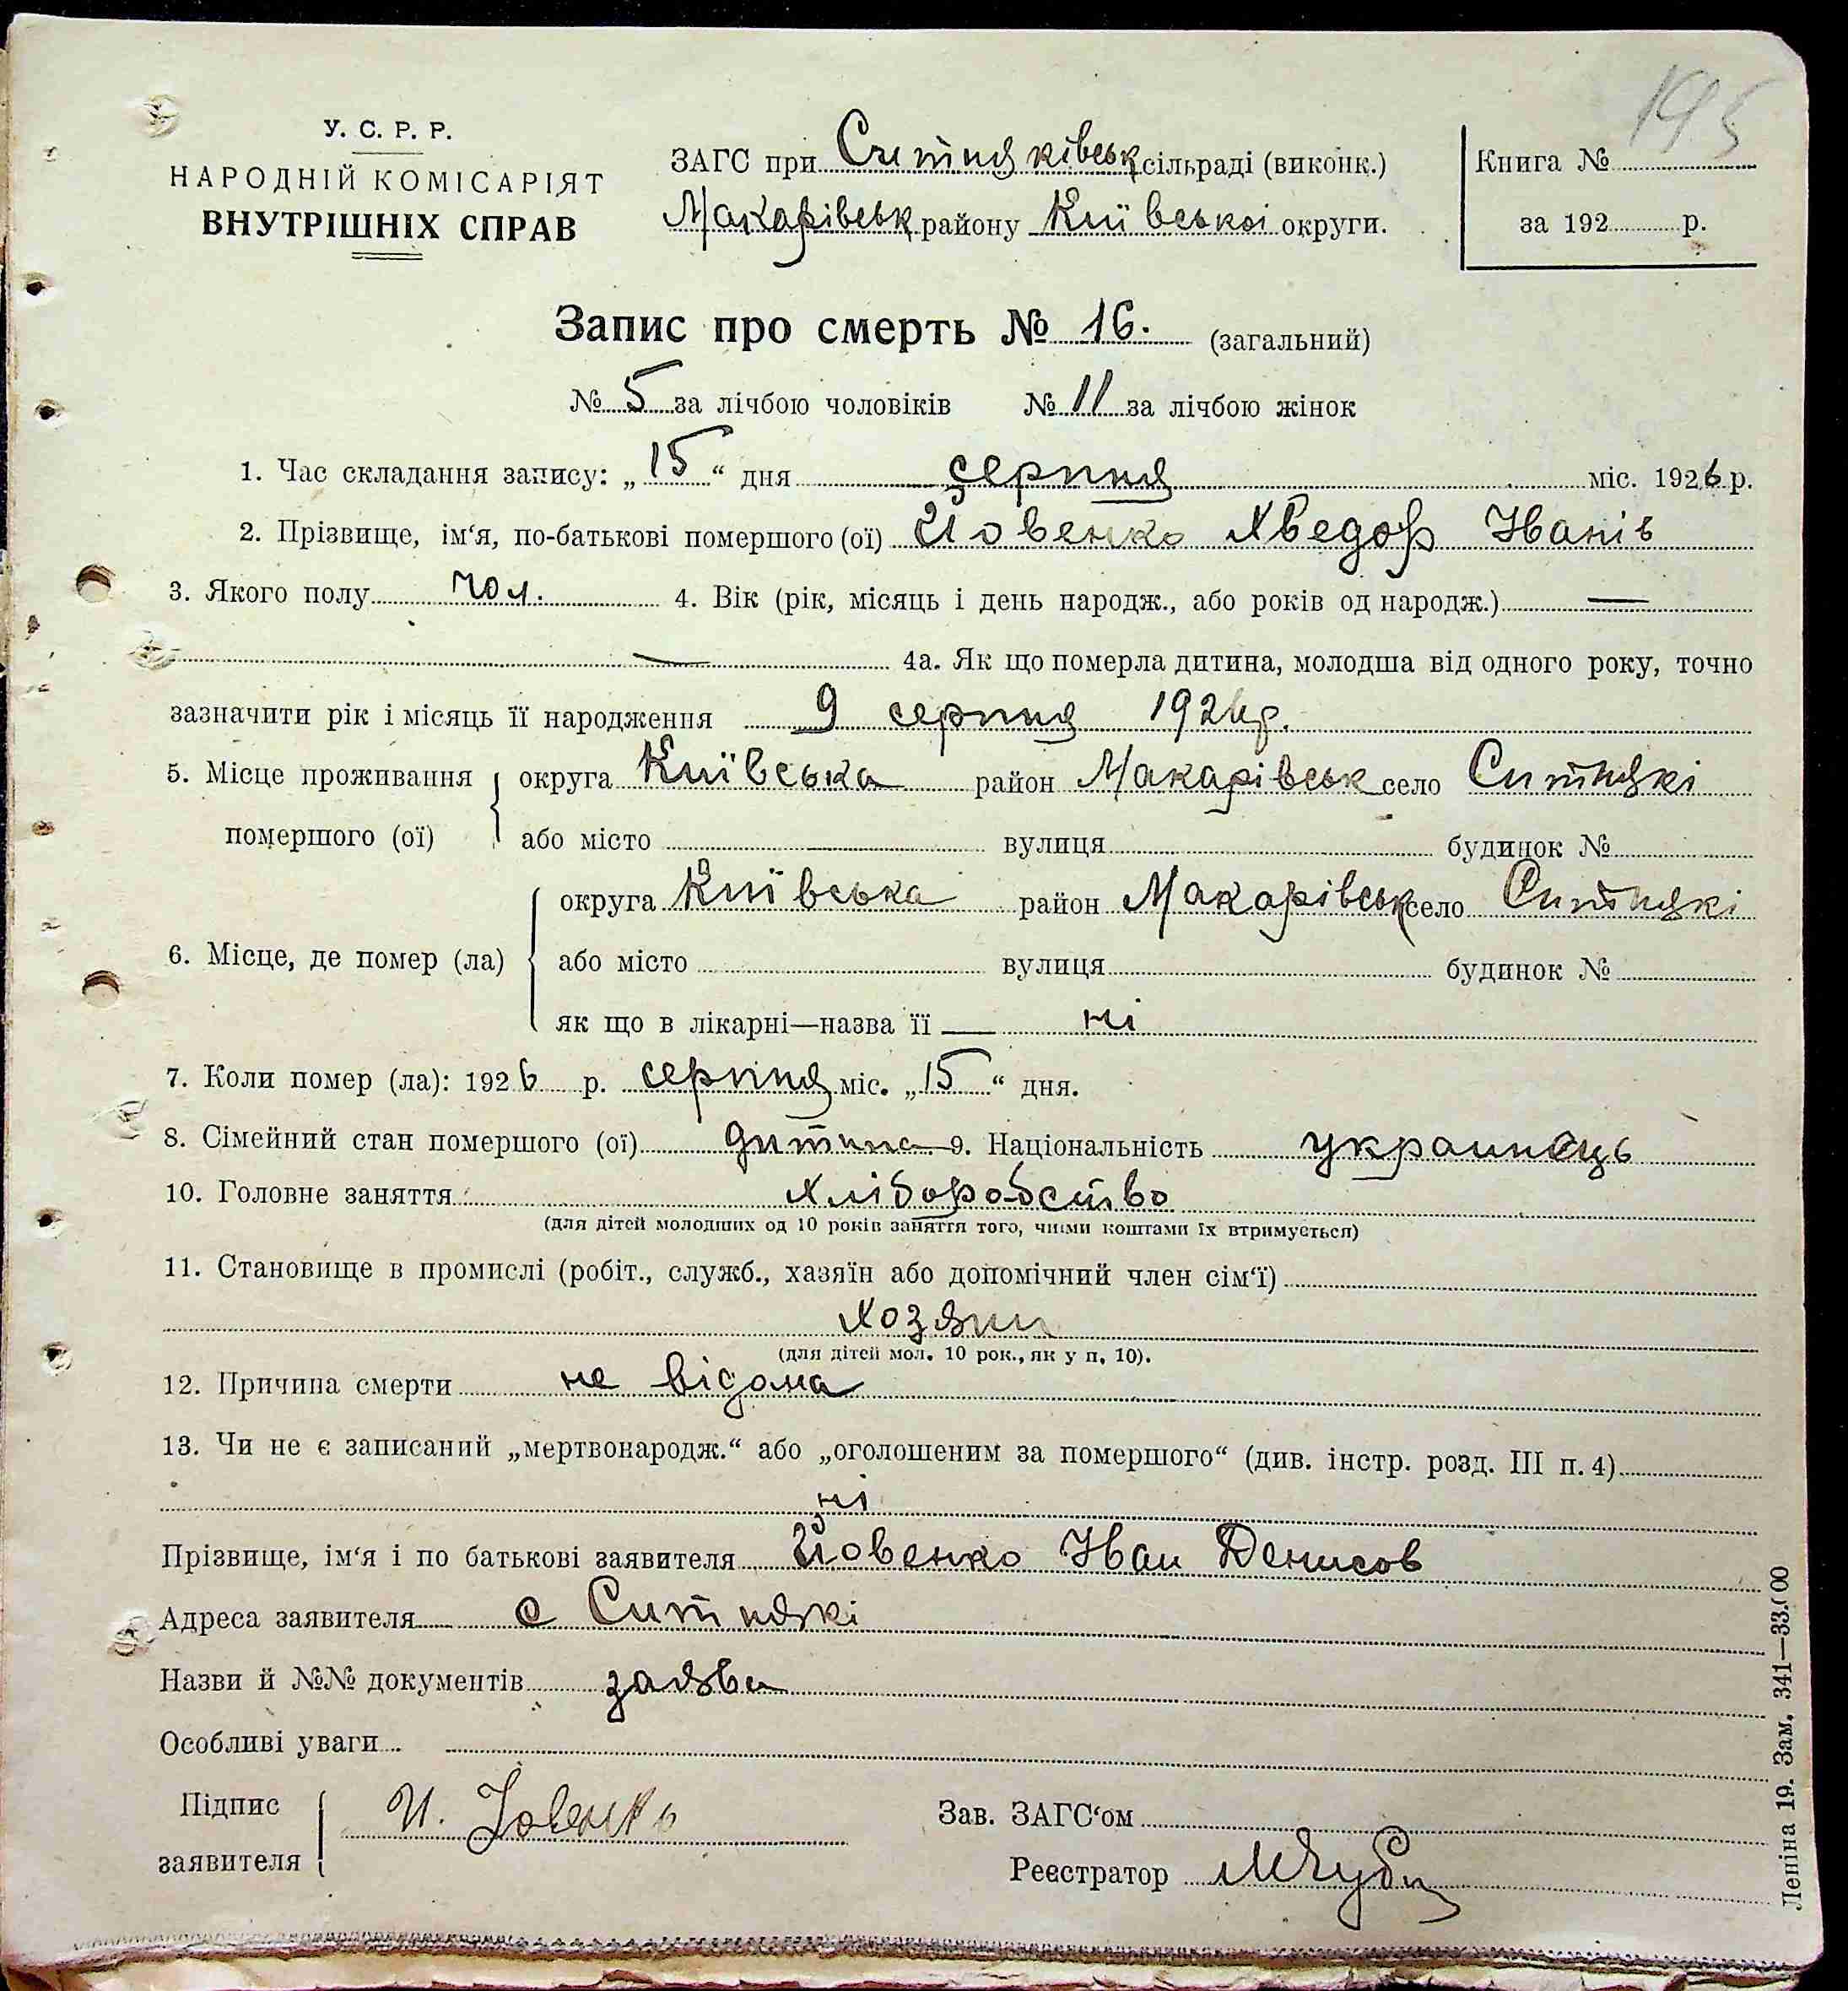 195
У. С. Р. Р.
НАРОДНІЙ КОМІСАРІЯТ
ВНУТРІШНІХ СПРАВ
ЗАГС при Ситняківськ сільраді (виконк.)
Макарівськ району Київської округи.
Книга №
за 192 р.
Запис про смерть № 16. (загальний)
№ 5 за лічбою чоловіків № 11 за лічбою жінок
1. Час складання запису: „ 15 “ дня серпня міс. 1926 р.
2. Прізвище, ім‘я, по-батькові помершого (ої) Йовенко Хведор Іванів
3. Якого полу чол. 4. Вік (рік, місяць і день народж., або років од народж.) —
— 4а. Як що померла дитина, молодша від одного року, точно
зазначити рік і місяць її народження 9 серпня 1926 р.
5. Місце проживання округа Київська район Макарівськ село Ситняки
помершого (ої) або місто вулиця будинок №
округа Київська район Макарівськ село Ситняки
6. Місце, де помер (ла) або місто вулиця будинок №
як що в лікарні—назва її — ні
7. Коли помер (ла): 1926 р. серпня міс. „ 15 “ дня.
8. Сімейний стан помершого (ої) дитина 9. Національність украинець
10. Головне заняття хліборобство
(для дітей молодших од 10 років заняття того, чиїми коштами їх втримується)
11. Становище в промислі (робіт., служб., хазяїн або допомічний член сім‘ї)
хозяин
(для дітей мол. 10 рок., як у п. 10).
12. Причина смерти не відома
13. Чи не є записаний „мертвонародж.“ або „оголошеним за помершого“ (див. інстр. розд. III п. 4)
ні
Прізвище, ім‘я і по батькові заявителя Йовенко Іван Денисов
Адреса заявителя с Ситнякі
Назви й №№ документів заява
Особливі уваги
Підпис
заявителя И. Йовенко
Зав. ЗАГС‘ом
Реєстратор
Леніна 19. Зам. 341—33.000